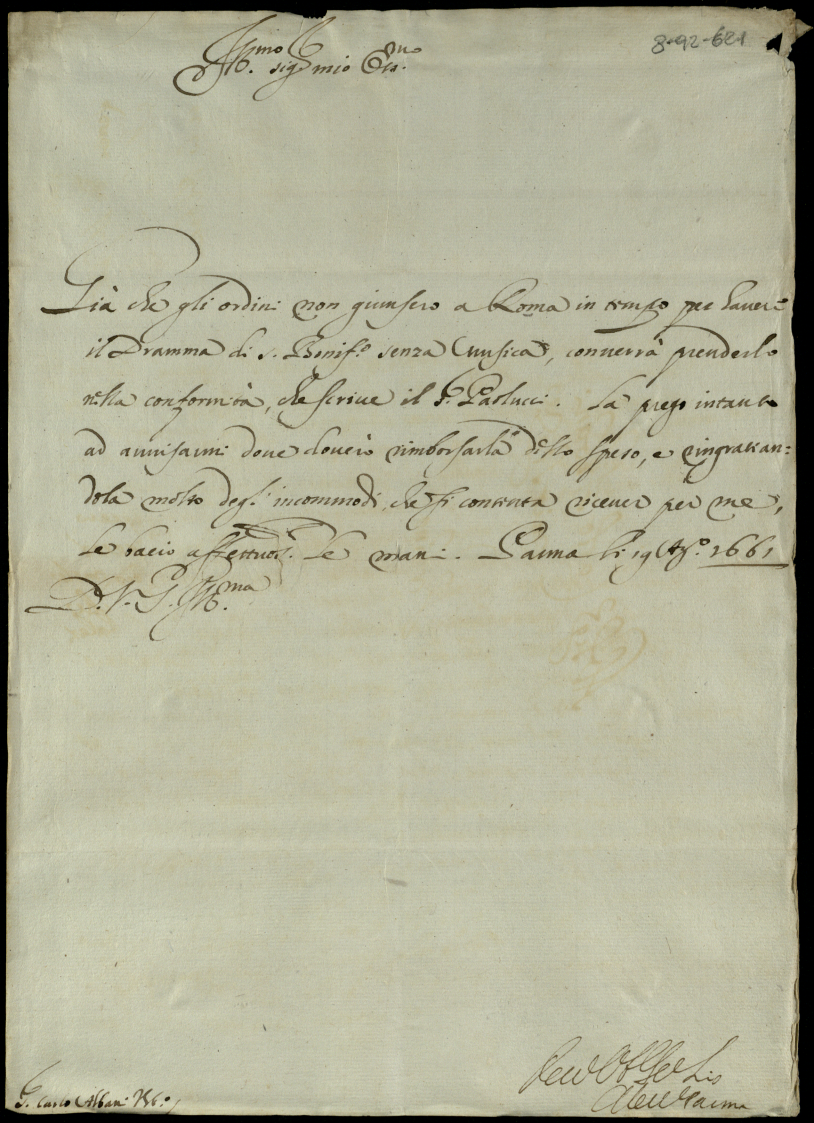 8-92-621
Ill.mo sig.r mio Oss.mo
Già che gli ordini non giunsero a Roma in tempo per hauere
il Dramma di S. Bonif.o senza Musica, conuerrà prenderlo
nella conformità, che scriue il S.r Paolucci. La prego intanto
ad auuisarmi doue douerò rimborsarla dello speso, e ringratian=
dola molto degl'incommodi, che si contenta riceuer per me,
le bacio affettuos.te le mani. Parma li 19 Ag.o 1661
D. V. S. Ill.ma
Parma
S. Carlo Albani Urb.o